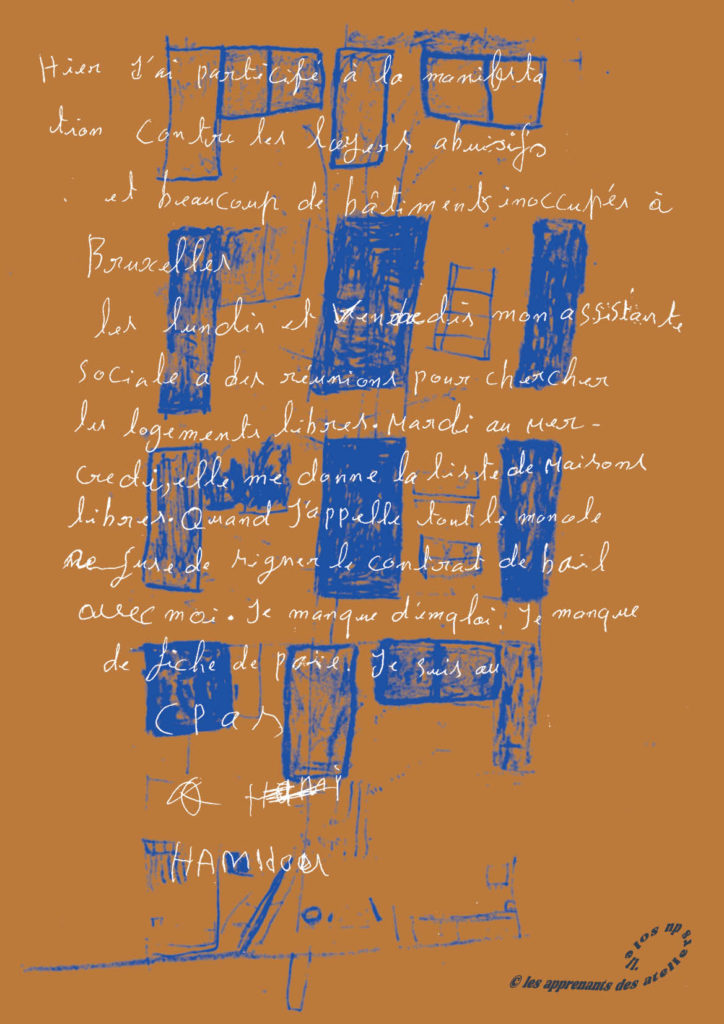 Hier J'ai participé à la manifesta
tion contre les loyers abusifs
. et beaucoup de bâtiments inoccupés à
Bruxelles
les lundis et Vendredis mon assistante
sociale a des réunions pour chercher
les logements libres. Mardi au Mer-
credi, elle me donne la liste de Maisons
libres. Quand J'appelle tout le monde
Refuse de signer le contrat de bail
avec moi. Je manque d'emploi. Je manque
de fiche de paie. Je suis au
CPAS
HAMIdou
© les apprenants des ateliers du soleil